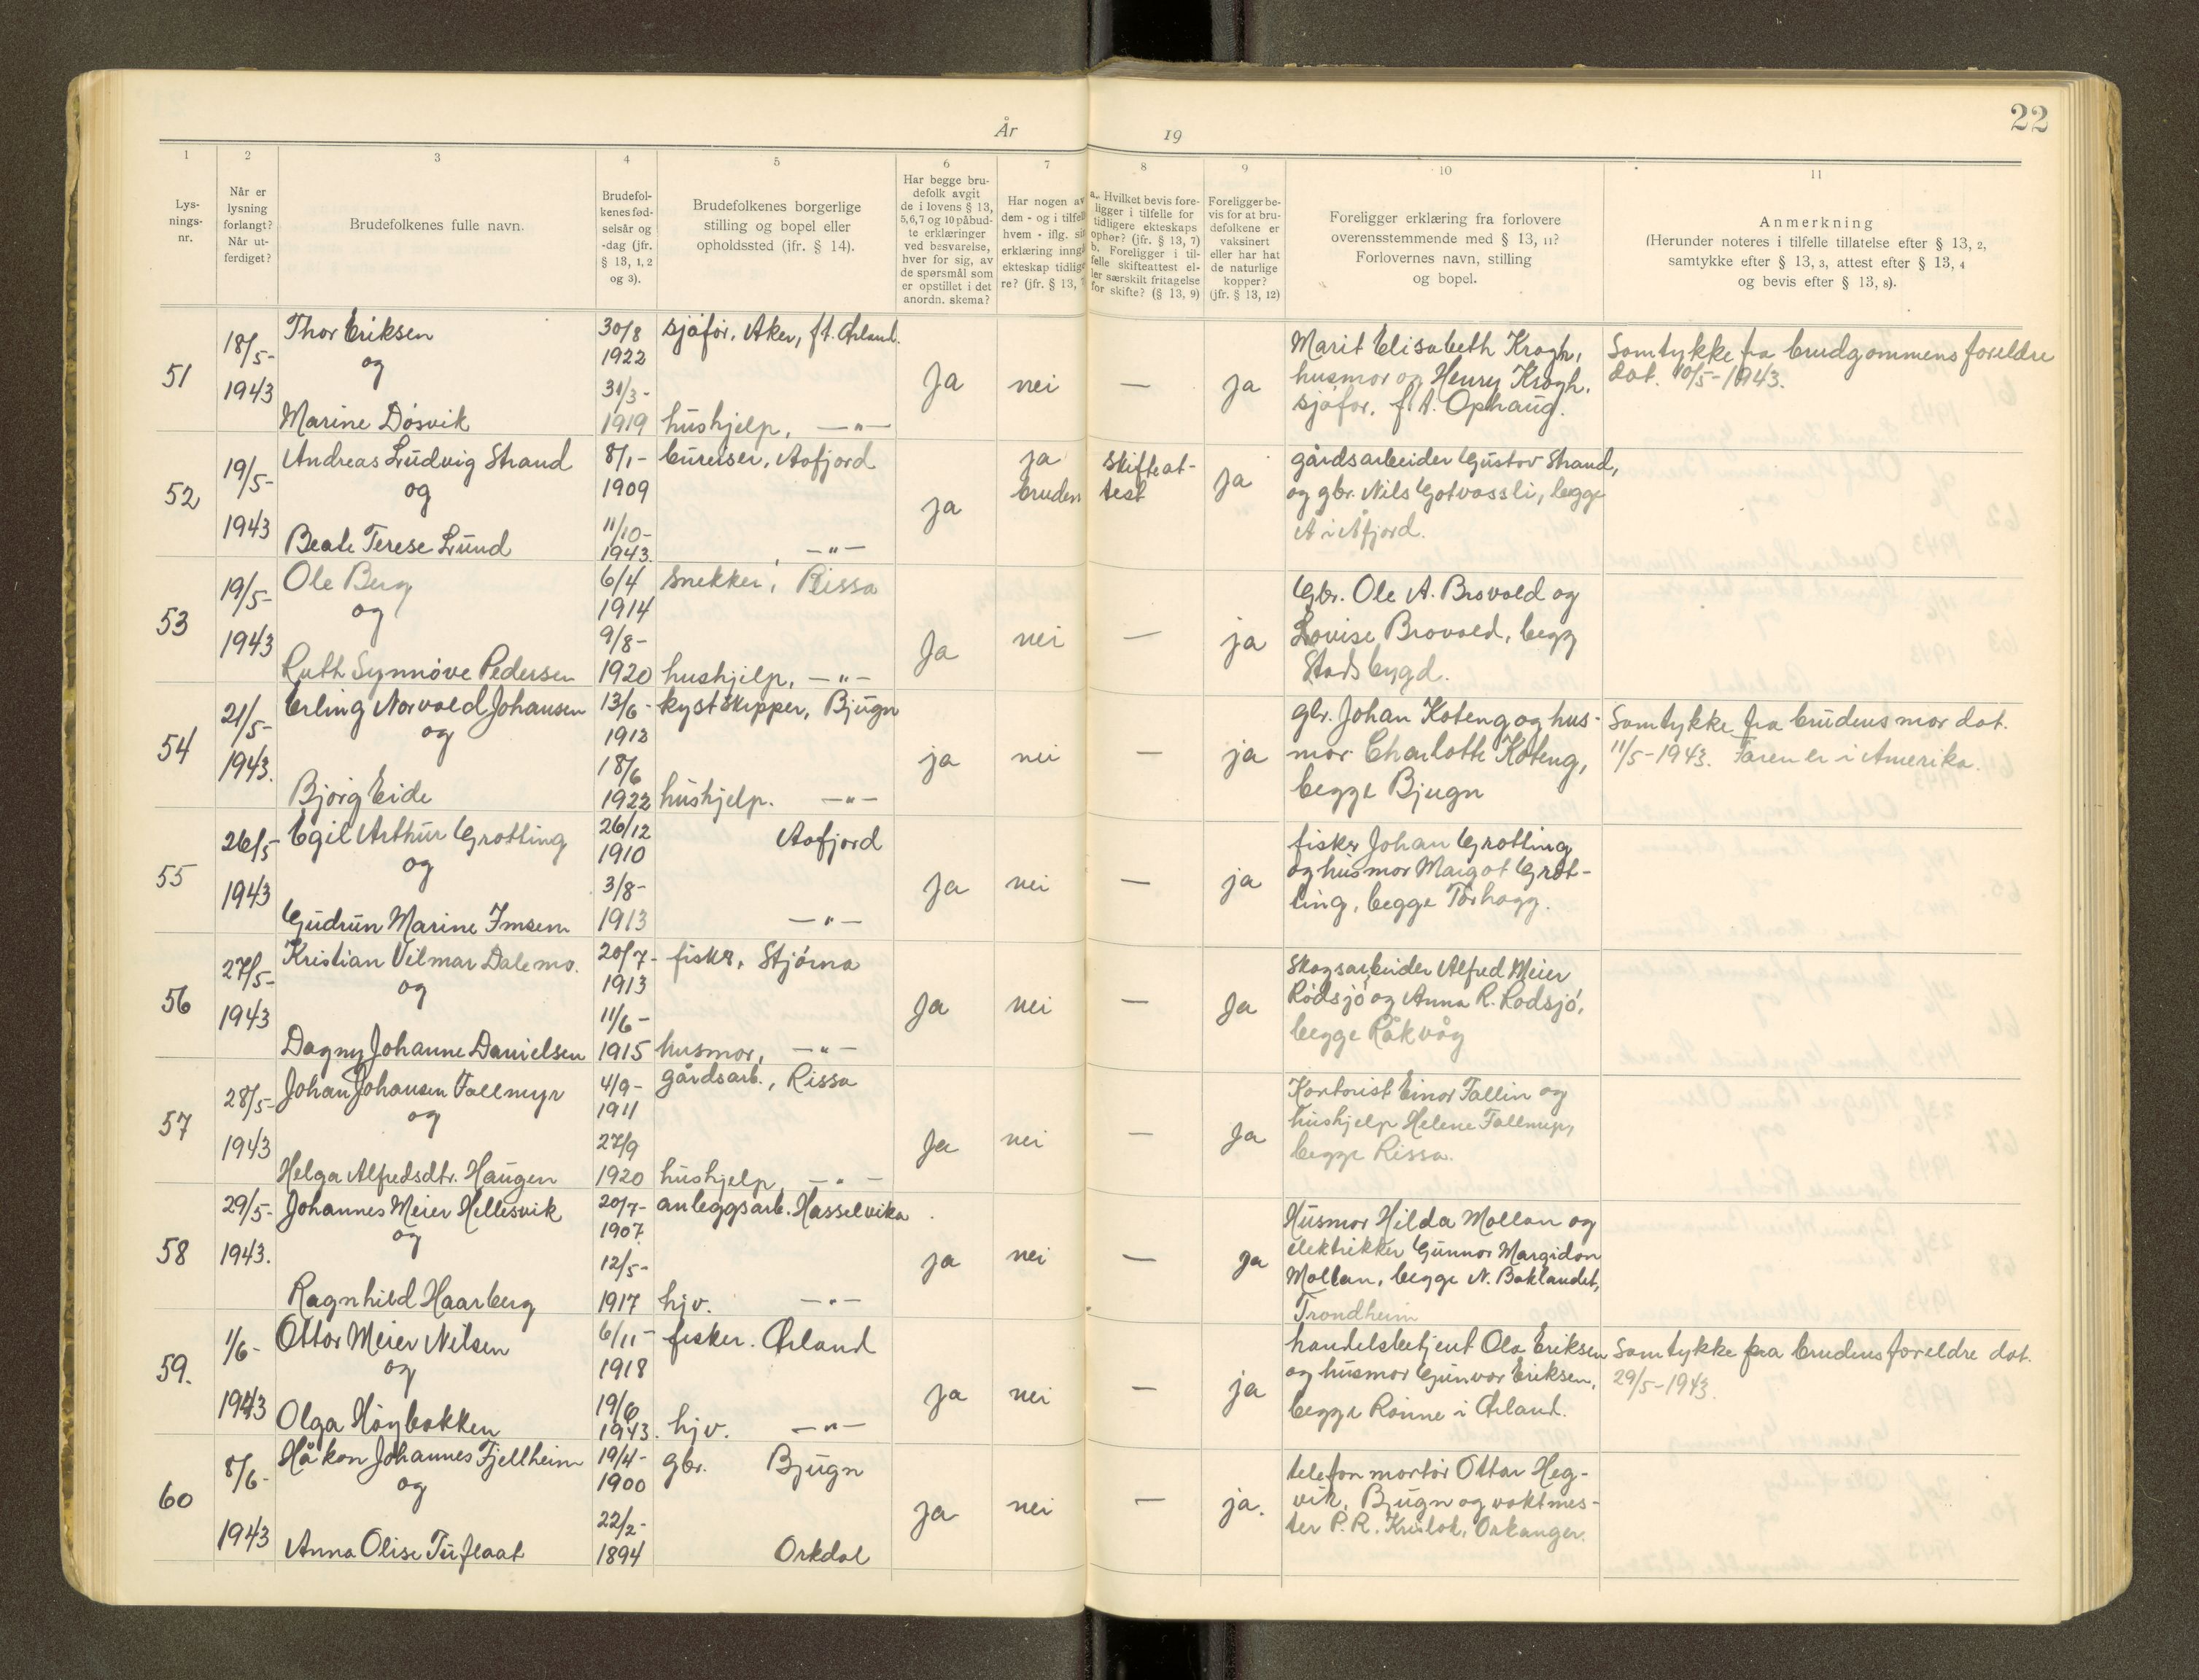 22
År 19
1 2 3 4 5 6 7 8 9 10 11
Lys-
nings-
nr.
Når er
lysning
forlangt?
Når ut-
ferdiget?
Brudefolkenes fulle navn.
Brudefol-
kenes fød-
selsår og
-dag (jfr.
§ 13, 1, 2
og 3).
Brudefolkenes borgerlige
stilling og bopel eller
opholdssted (ifr. § 14).
Har begge bru-
defolk avgit
de i lovens § 13,
5, 6, 7 og 10 påbud-
te erklæringer
ved besvarelse,
hver for sig, av
de spørsmål som
er opstillet i det
anordn. skema?
Har nogen av
dem - og i tilfel
hvem - iflg. si
erklæring inng
ekteskap tidlig
re? (jfr. § 13,
a. Hvilket bevis fore-
ligger i tilfelle for
tidligere ekteskaps
ophør? (jfr. § 13, 7)
b. Foreligger i til-
felle skifteattest el-
ler særskilt fritagelse
for skifte? (§ 13, 9)
Foreligger be-
vis for at bru-
defolkene er
vaksinert
eller har hat
de naturlige
kopper?
(jfr. § 13, 12)
Foreligger erklæring fra forlovere
overensstemmende med § 13, 11?
Forlovernes navn, stilling
og bopel.
Anmerkning
(Herunder noteres i tilfelle tillatelse efter § 13, 2,
samtykke efter § 13, 3, attest efter § 13, 4
og bevis efter § 13, 8).
51
18/5-
1943
Thor Eriksen
og
Marine Døsvik
30/8
1922
31/3-
1919
sjåfør, Aker, f.t. Ørland.
hushjelp, —"—
Ja
nei
—
ja
Marit Elisabeth Krogh,
husmor og Henry Krogh,
sjåfør, f.t. Ophaug.
Samtykke fra brudgommens foreldre
dat. 10/5-1943.
52
19/5-
1943
Andreas Ludvig Strand
og
Beate Terese Lund
8/1-
1909
11/10-
1943.
bureiser, Aafjord
—"—
ja
ja
bruden
skifteat-
test
Ja
gårdsarbeider Gustav Strand,
og gbr. Nils Gotvassli, begge
Å i Åfjord.
53
19/5-
1943
Ole Berg
og
Ruth Synnøve Pedersen
6/4
1914
9/8-
1920
snekker, Rissa
hushjelp, —"—
Ja
nei
—
ja
Gbr. Ole A. Brovold og
Lovise Brovold, begg
Stadsbygd.
54
21/5-
1943.
Erling Norvald Johansen
og
Bjørg Eide
13/6-
1913
18/6
1922
kystskipper, Bjugn
hushjelp. —"—
ja
nei
—
ja
gbr. Johan Koteng og hus-
mor Charlotte Koteng,
begge Bjugn
Samtykke fra brudens mor dat.
11/5-1943. Faren er i Amerika.
55
26/5-
1943
Egil Arthur Grøtting
og
Gudrun Marine Imsen
26/12
1910
3/8-
1913
Aafjord
—"—
Ja
nei
—
ja
fisker Johan Grøtting
og husmor Margot Grøt-
ting, begge Tørhogg.
56
27/5-
1943
Kristian Vilmar Dalemo.
og
Dagny Johanne Danielsen
20/7-
1913
11/6-
1915
fisker, Stjørna
husmor, —"—
Ja
nei
—
Ja
Skogsarbeider Alfred Meier
Rødsjø og Anna R. Rødsjø,
begge Råkvåg
57
28/5-
1943
Johan Johansen Fallmyr
og
Helga Alfredsdtr. Haugen
4/9-
1911
27/9
1920
gårdsarb., Rissa
hushjelp —"—
Ja
nei
—
Ja
Kontorist Einar Fallin og
hushjelp Helene Fallmyr,
begge Rissa.
58
29/5-
1943.
Johannes Meier Hellesvik
og
Ragnhild Haarberg
20/7-
1907
12/5-
1917
anleggsarb. Hasselvika
hjv. —"—
ja
nei
—
Ja
Husmor Hilda Mollan og
elektrikker Gunnar Margidon
Mollan, begge N. Baklandet,
Trondheim
59.
1/6-
1943
Ottar Meier Nilsen
og
Olga Høybakken
6/11-
1918
19/6
1943.
fisker. Ørland
hjv. —"—
Ja
nei
—
ja
handelsbetjent Ola Eriksen
og husmor Gunvor Eriksen,
begge Rønne i Ørland.
Samtykke fra brudens foreldre dat.
29/5-1943.
60
8/6-
1943
Håkon Johannes Fjellheim
og
Anna Olise Tuflaat
19/4-
1900
22/2-
1894
gbr. Bjugn
Orkdal
Ja
nei
—
ja.
telefonmontør Ottar Heg-
vik, Bjugn og vaktmes-
ter P. R. Orkanger.